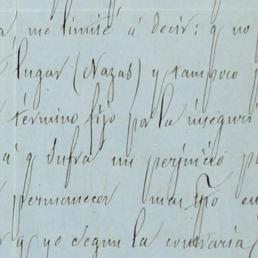 , me limité á decir: q no
lugar (Nazas) y tampoco
término fijo por la inseguri
á q sufrá un perjuicio po
permanecer mas tpo en
q yo segun la contraria